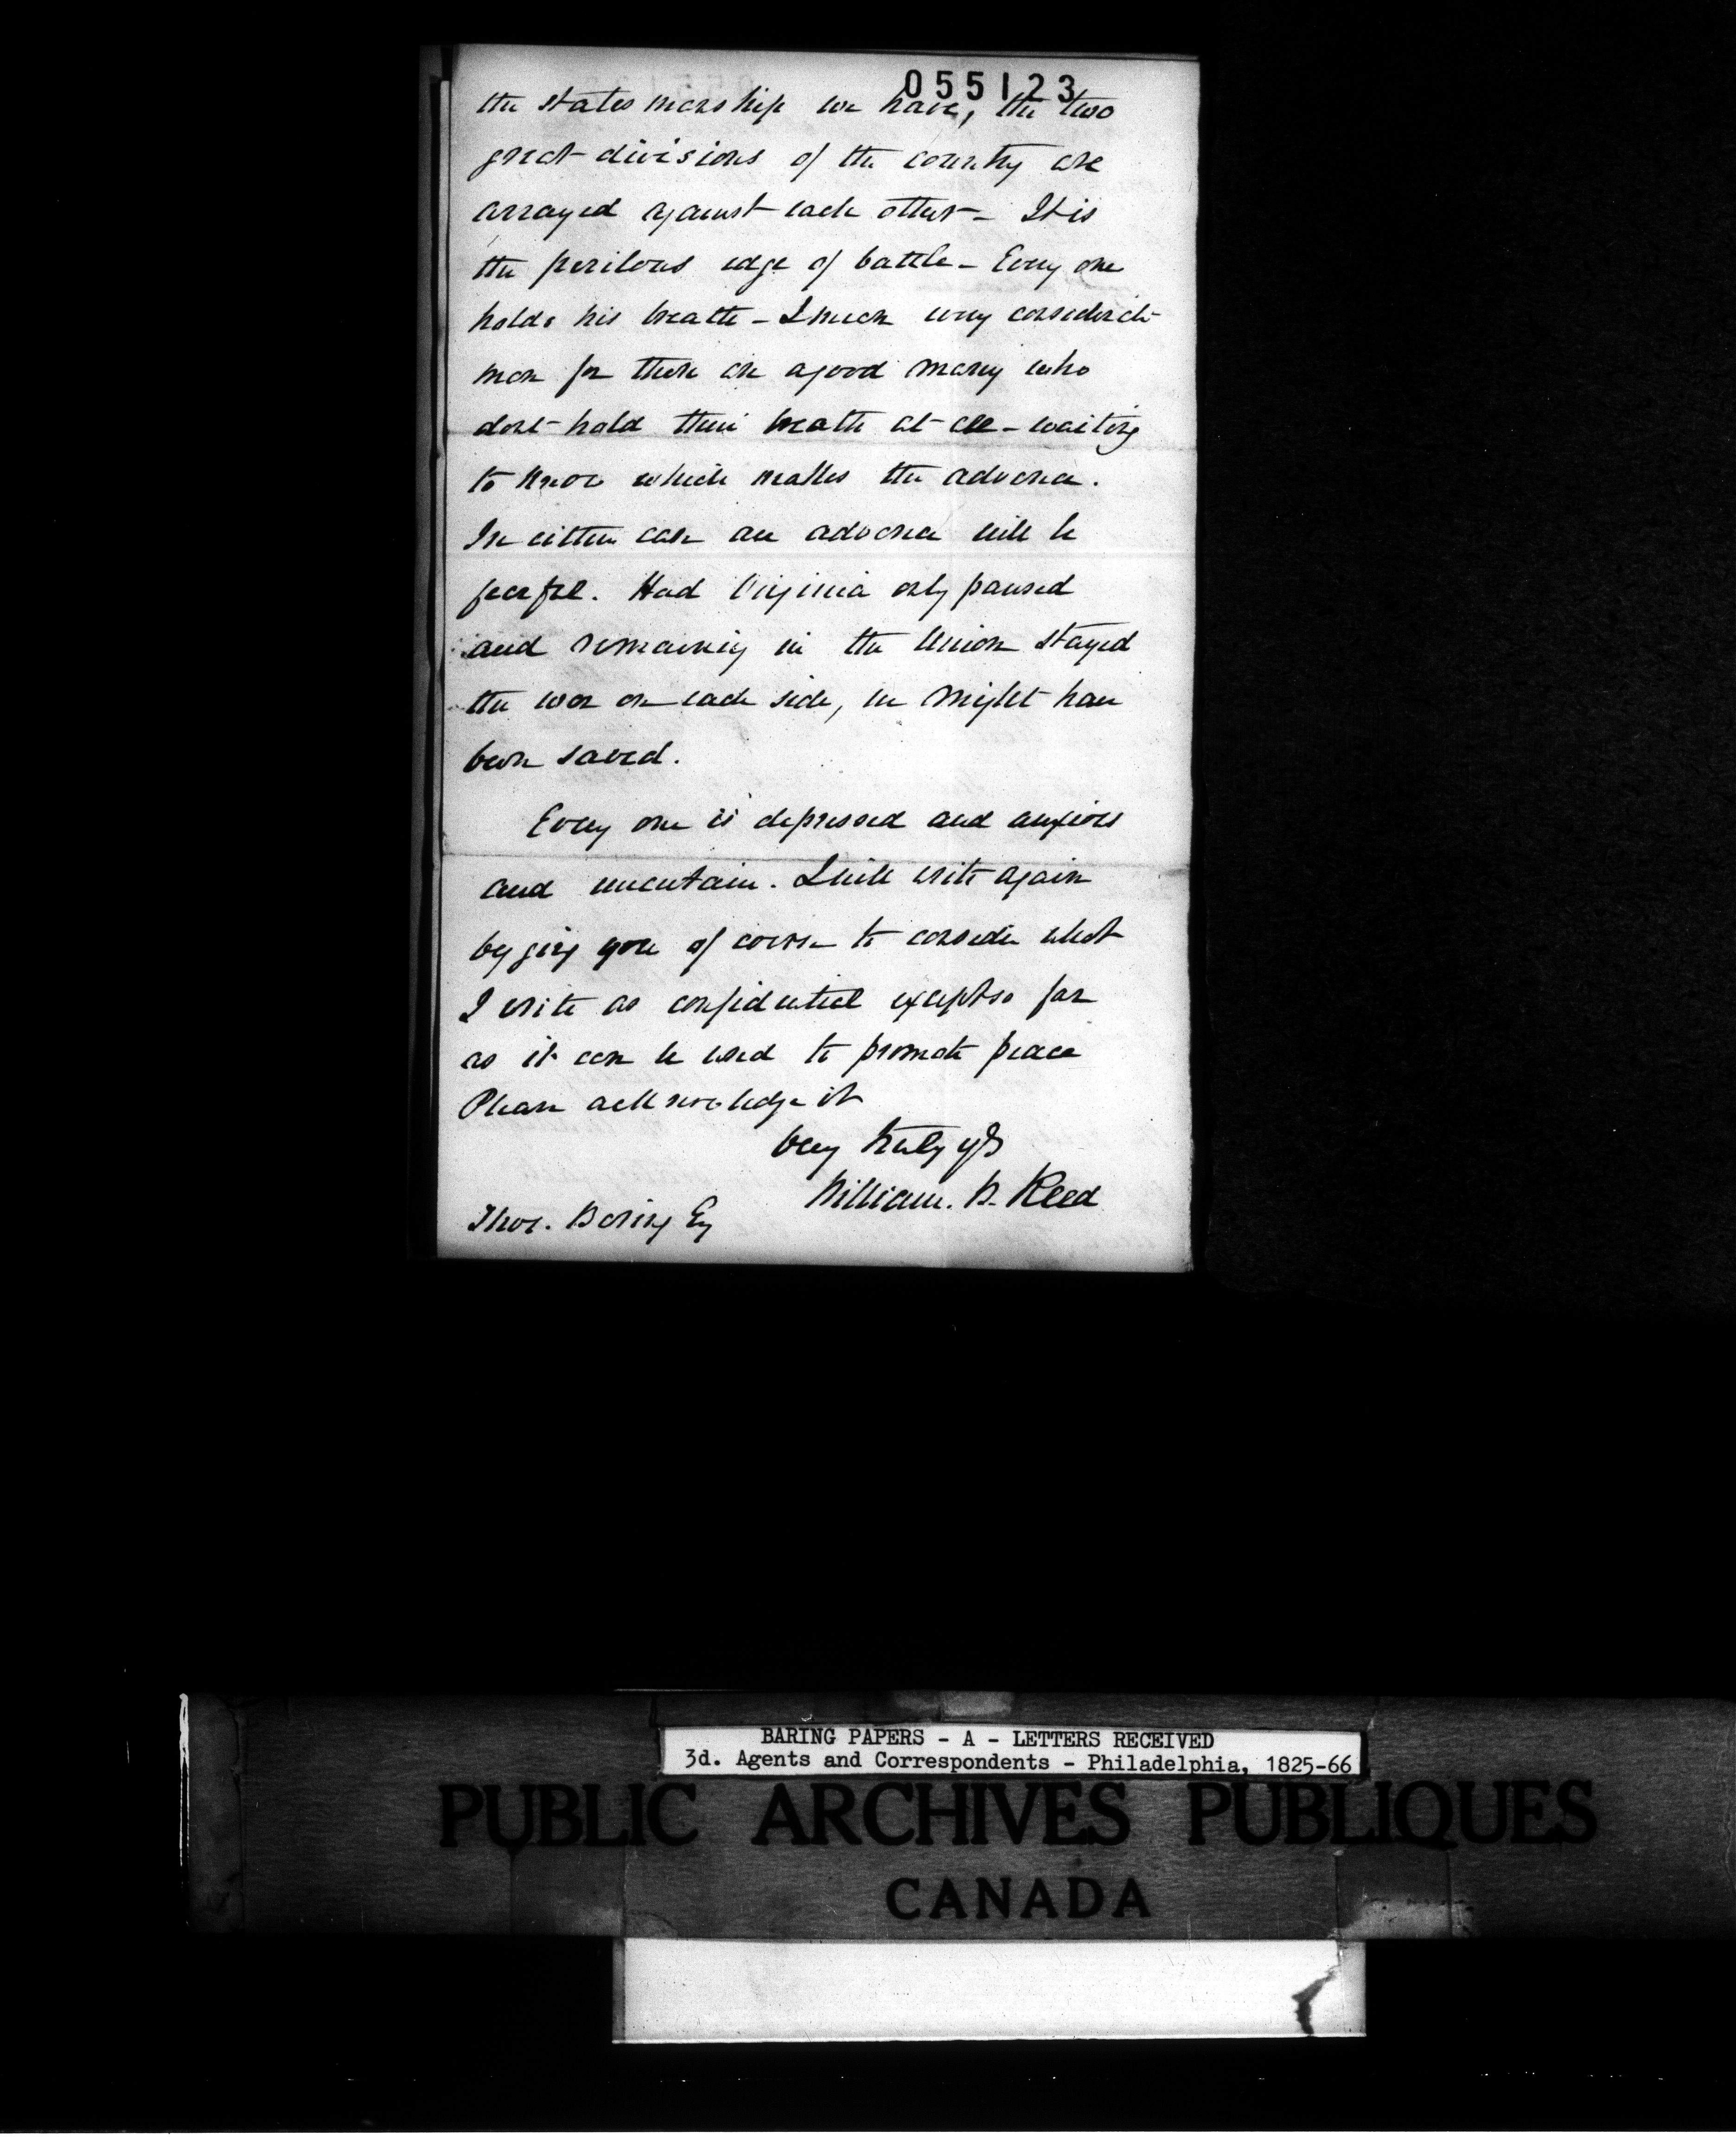 055123
the statesmanship we have, the two
great divisions of the country are
arrayed against each other – It is
the perilous edge of battle – Every one
holds his breath – I mean every considerate
man for there are a good many who
dont hold their breath at all – waiting
to know which makes the advance.
In either case an advance will be
fearful. Had Virginia only paused
and remaining in the Union stayed
the war on each side, we might have
been saved.
Every one is depressed and anxious
and uncertain. I will write again
begging you of course to consider what
I write as confidential except so far
as it can be used to promote peace
Please acknowledge it
Very truly yrs
William. B. Reed
Thos. Baring Esq
BARING PAPERS - A - LETTERS RECEIVED
3d. Agents and Correspondents - Philadelphia, 1825-66
PUBLIC ARCHIVES PUBLIQUES
CANADA